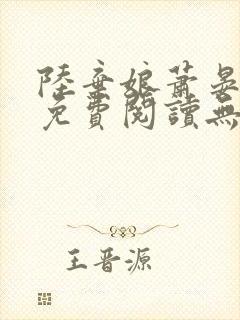 陸棄娘蕭晏
免費閱讀無
王晋源